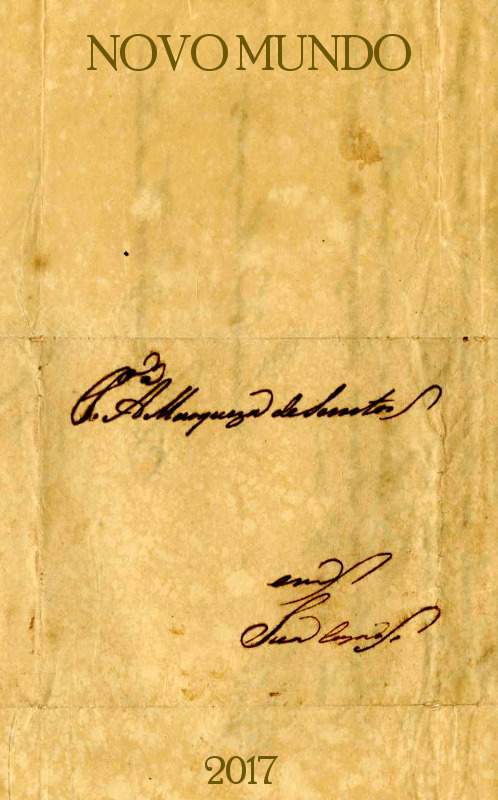 NOVO MUNDO
P.ª A Marqueza de Santos
em
Sua caza
2017